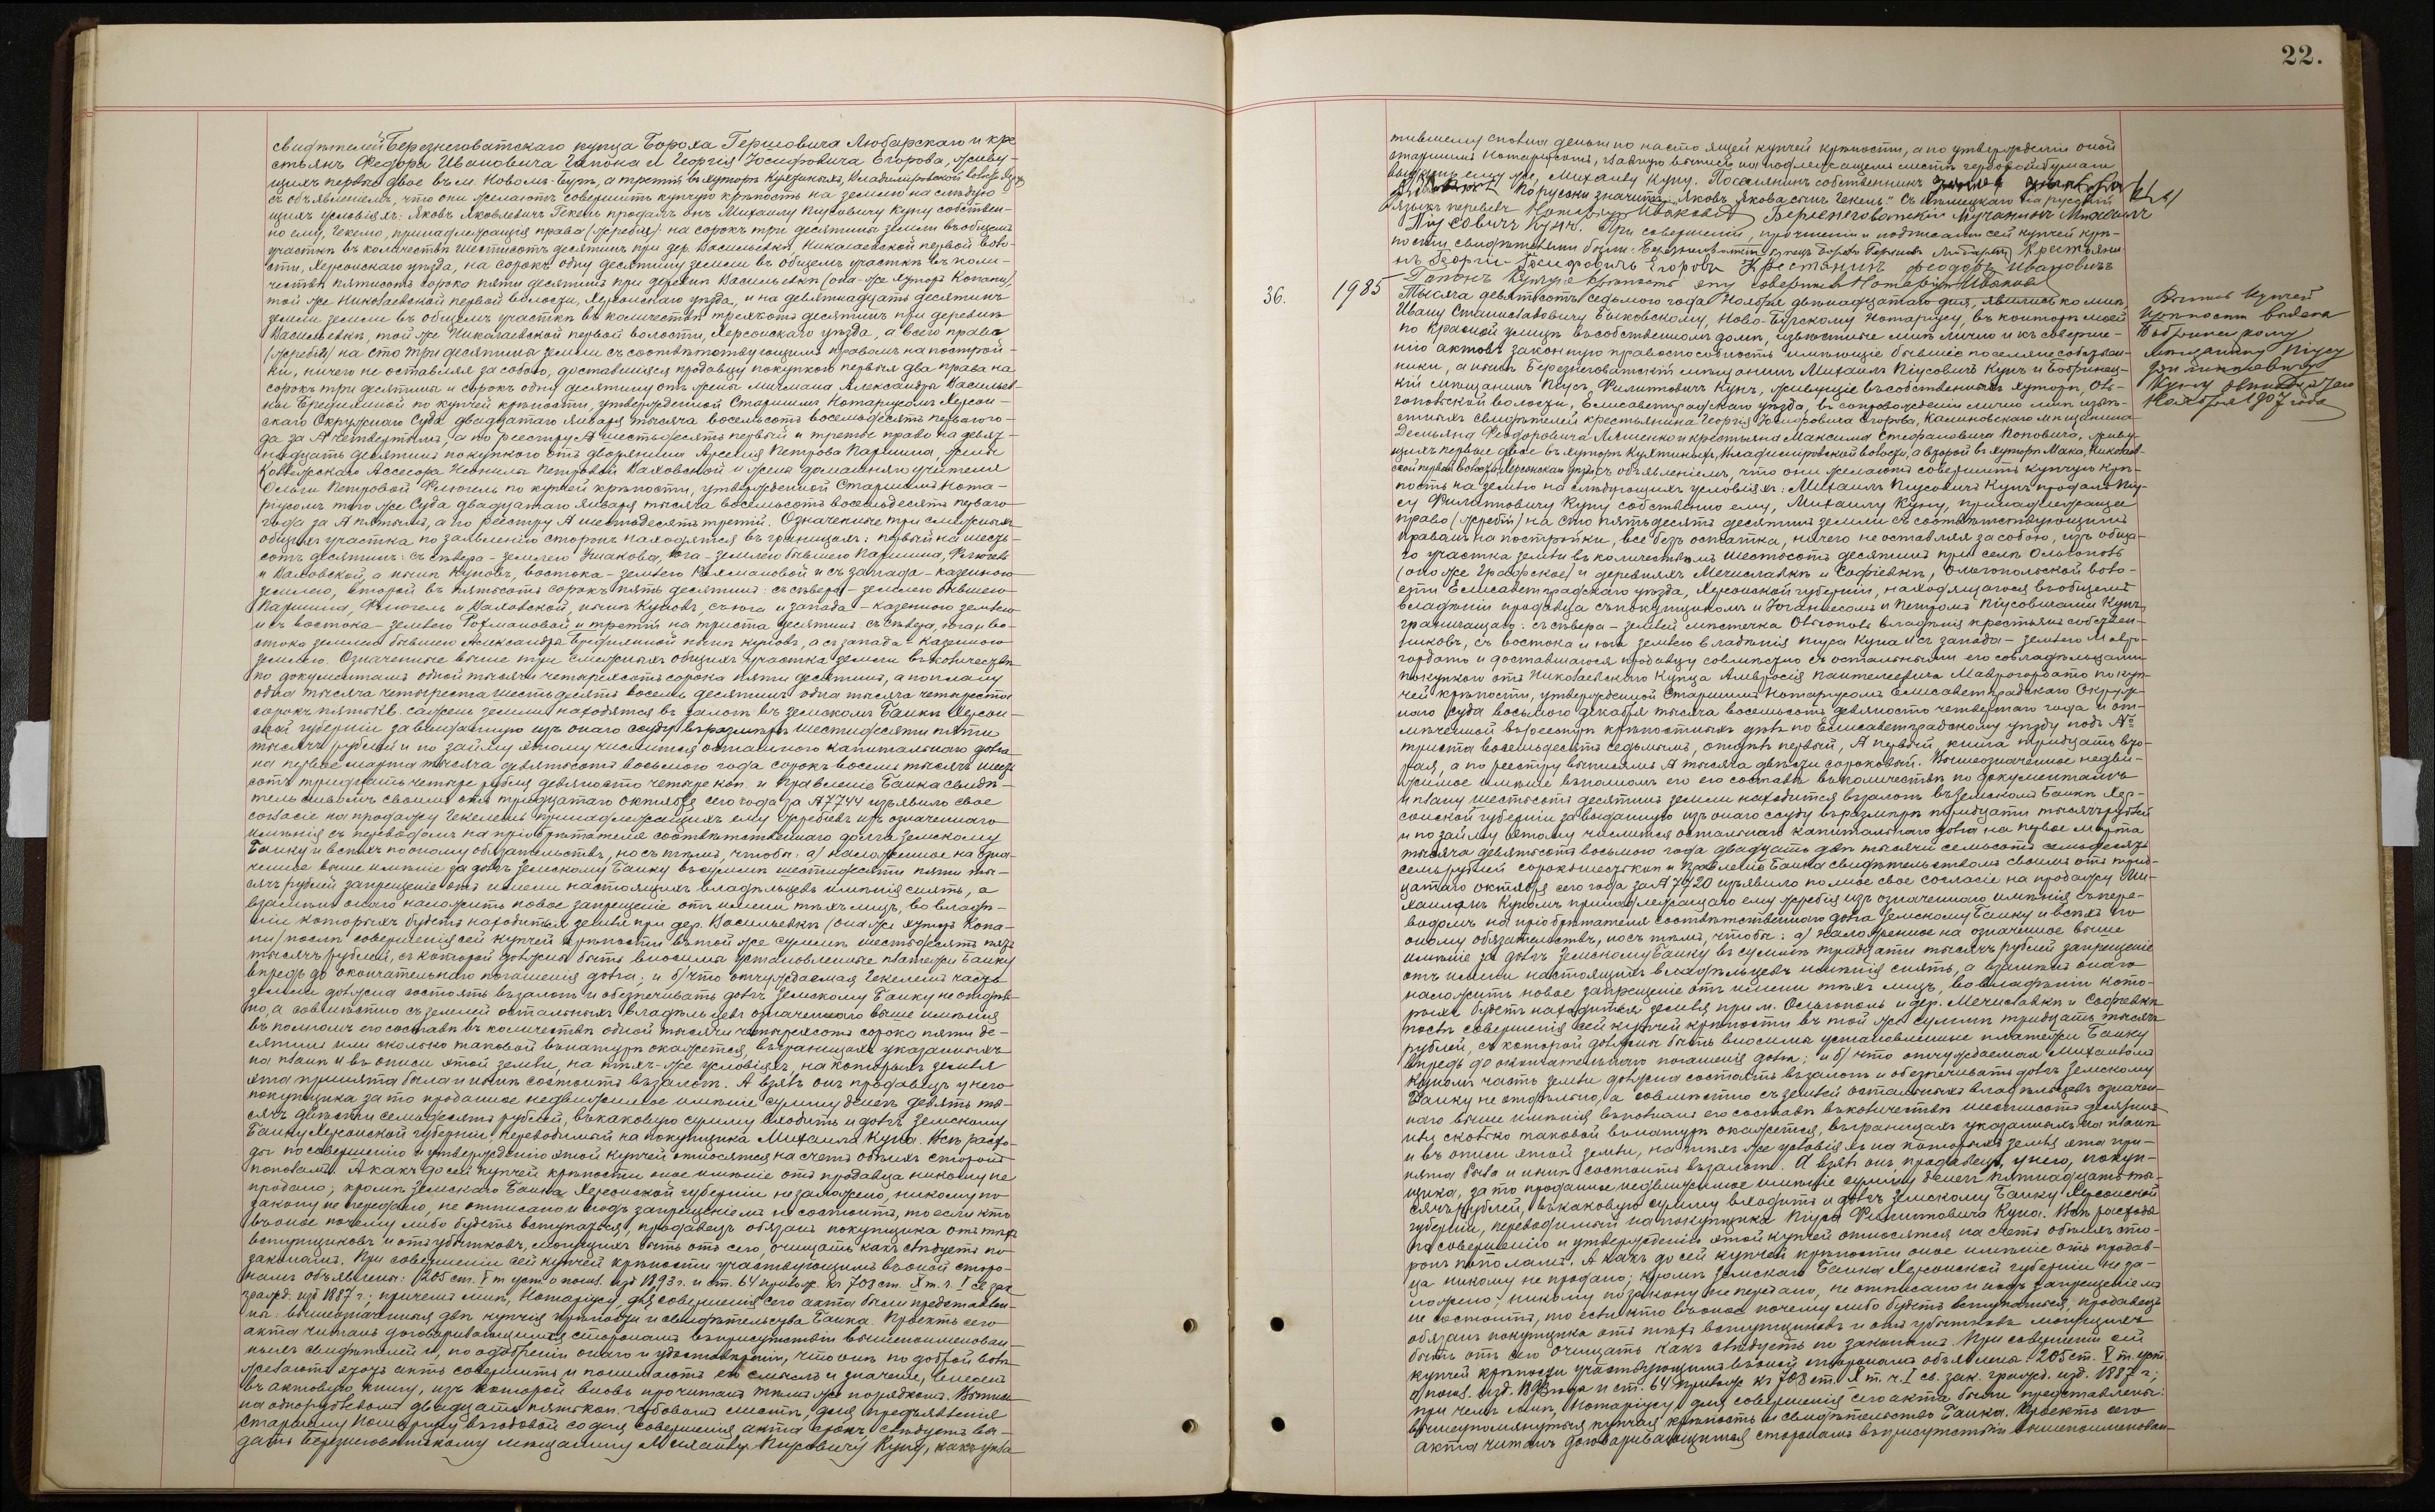 свидѣтелей Березнеговатскаго купца Бороха Гершовича Любарскаго и кре
стьянъ Федора Ивановича Гапона и Георгія Іосифовича Егорова, живу-
щихъ первые двое въ м. Новомъ-Бугѣ, а третій въ хуторѣ Владимировской волости
съ объявленіемъ, что они желаютъ совершить купчую крѣпость на землю на слѣдую
щихъ условіяхъ: Яковъ Яковлевичъ Гекель продалъ онъ Михаилу Піусовичу Куну собствен-
но ему, Гекелю, принадлежащія права (жребія): на сорокъ три десятины земли въ общемъ
участкѣ въ количествѣ шестисотъ десятинъ при дер. Васильевкѣ, Николаевской первой воло-
сти, Херсонскаго уѣзда, на сорокъ одну десятину земли въ общемъ участкѣ въ коли-
чествѣ пятисотъ сорока пяти десятинъ при деревнѣ Васильевкѣ (она-же хуторъ Копани),
той же Николаевской первой волости, Херсонскаго уѣзда, и на девятнадцать десятинъ
земли земли въ общемъ участкѣ въ количествѣ трехсотъ десятинъ при деревнѣ
Васильевкѣ, той же Николаевской первой волости, Херсонскаго уѣзда, а всего права
(жребія) на сто три десятины земли съ соотвѣтствующимъ правомъ на построй-
ки, ничего не оставляя за собою, доставшіяся продавцу покупкою первыя два права на
сорокъ три десятины и сорокъ одну десятину отъ жены мичмана Александры Васильев-
ны по купчей крѣпости, утвержденной Старшимъ Нотаріусомъ Херсон-
скаго Окружнаго Суда двадцатаго Января тысяча восемьсотъ восемьдесятъ перваго го-
да за № четвертымъ, а по реестру № шестьдесятъ первый и третье право на девят-
надцать десятинъ покупкою отъ дворянина Арсенія Петрова Паршина, жены
Коллежскаго Ассесора Неонилы Петровой Далховской и жены домашняго учителя
Ольги Петровой Флюгель по купчей крѣпости, утвержденной Старшимъ Нота-
ріусомъ того же Суда двадцатаго Января тысяча восемьсотъ восемьдесятъ перваго
года за № пятымъ, а по реестру № шестьдесятъ третій. Означенные три смежныхъ
общихъ участка по заявленію сторонъ находятся въ границахъ: первый на шесть-
сотъ десятинъ: съ сѣвера - землею Ушакова, юга - землею бывшею Паршина, Флюгель
и Далховской, а нынѣ Куновъ, востока - землею и съ запада - казенною
землею, второй въ пятьсотъ сорокъ пять десятинъ: съ сѣвера - землею бывшею
Паршина, Флюгель и Далховской, нынѣ Куновъ, съ юга и запада - казенною землею
и съ востока - землею и третій на триста десятинъ: съ сѣвера, юга и во-
стока землею бывшею Александры нынѣ Куновъ, а съ запада - казенною
землею. Означенные выше три смежныхъ общихъ участка земли въ количествѣ
по документамъ одной тысячи четырехсотъ сорока пяти десятинъ, а по плану
одна тысяча четыреста шестьдесятъ восемь десятинъ одна тысяча четыреста
сорокъ пять кв. сажень земли находятся въ залогѣ въ Земскомъ Банкѣ Херсон-
ской губерніи за выданную изъ онаго ссуду въ размѣрѣ шестидесяти пяти
тысячъ рублей и по займу этому числится остальнаго капитальнаго долга
на первое марта тысяча девятьсотъ восьмого года сорокъ восемь тысячъ шесть
сотъ тридцать четыре рубля девяносто четыре коп. и Правленіе Банка свидѣ-
тельствомъ своимъ отъ тридцатаго октября сего года за № 7744 изъявило свое
согласіе на продажу Гекелемъ принадлежащихъ ему жребіевъ изъ означеннаго
имѣнія съ переводомъ на пріобрѣтателя соотвѣтственнаго долга Земскому
Банку и всѣхъ по оному обязательствъ, но съ тѣмъ, чтобы: а) наложенное на озна-
ченное выше имѣніе за долгъ Земскому Банку въ суммѣ шестидесяти пяти ты-
сячъ рублей запрещеніе отъ имени настоящихъ владѣльцевъ имѣнія снять, а
взамѣнъ онаго наложить новое запрещеніе отъ имени тѣхъ лицъ, во владѣ-
ніи которыхъ будетъ находиться земля при дер. Васильевкѣ (она же хуторъ Копа-
ни) послѣ совершенія сей купчей крѣпости въ той же суммѣ шестьдесятъ пять
тысячъ рублей, съ которой должны быть вносимы установленные платежи Банку
впредь до окончательнаго погашенія долга; и б) что отчуждаемая Гекелемъ часть
земли должна состоять въ залогѣ и обезпечивать долгъ Земскому Банку не отдѣль-
но, а совмѣстно съ землей остальныхъ владѣльцевъ означеннаго выше имѣнія
въ полномъ его составѣ въ количествѣ одной тысячи четырехсотъ сорока пяти де-
сятинъ или сколько таковой въ натурѣ окажется, въ границахъ указанныхъ
на планѣ и въ описи этой земли, на тѣхъ-же условіяхъ, на которыхъ земля
эта принята была и нынѣ состоитъ въ залогѣ. А взялъ онъ продавецъ у него
покупщика за то проданное недвижимое имѣніе сумму денегъ девять ты-
сячъ двѣсти семьдесятъ рублей, въ каковую сумму входитъ и долгъ Земскому
Банку Херсонской губерніи, переводимый на покупщика Михаила Куна. Всѣ расхо-
ды по совершенію и утвержденію этой купчей относятся на счетъ обѣихъ сторонъ
пополамъ. А какъ до сей купчей крѣпости оное имѣніе отъ продавца никому не
продано; кромѣ Земскаго Банка Херсонской губерніи не заложено, никому по
закону не передано, не отписано и подъ запрещеніемъ не состоитъ, то если кто
въ оное почему либо будетъ вступаться, продавецъ обязанъ покупщика отъ тѣхъ
вступщиковъ и отъ убытковъ, могущихъ быть отъ сего, очищать какъ слѣдуетъ по
законамъ. При совершеніи сей купчей крѣпости участвующимъ въ оной сторо-
намъ объявлены: 205 ст. V т. уст. о пошл. изд. 1893 г. и ст. 64 прилож. къ 708 ст. X т. ч. I св. зак.
гражд. изд. 1887 г.; причемъ мнѣ, Нотаріусу, для совершенія сего акта были представле-
ны: вышеозначенныя двѣ купчія крѣпости и свидѣтельства Банка. Проектъ сего
акта читанъ договаривающимся сторонамъ въ присутствіи вышепоименован-
ныхъ свидѣтелей и, по одобреніи онаго и удостовѣреніи, что они по доброй волѣ
желаютъ этотъ актъ совершить и понимаютъ его смыслъ и значеніе, внесенъ
въ актовую книгу, изъ которой вновь прочитанъ тѣмъ же порядкомъ. Выпись
на однорублевомъ двадцать пять коп. гербовомъ листѣ, для предъявленія
Старшему Нотаріусу въ годовой со дня совершенія акта срокъ, слѣдуетъ вы-
дать Березнеговатскому мѣщанину Михаилу Піусовичу Куну, какъ упла-
22.
тившему сполна деньги по настоящей купчей крѣпости, а по утвержденіи оной
старшимъ Нотаріусомъ, главную выпись на подлежащемъ листѣ гербовой бумаги
выдать ему же, Михаилу Куну. Поселянинъ собственникъ
По русски значитъ: "Яковъ Якова сынъ Гекель" съ нѣмецкаго на русскій
языкъ перевелъ Нотаріусъ Быковскій Березнеговатскій мѣщанинъ Михаилъ
Піусовичъ Кунъ. При совершеніи, прочтеніи и подписаніи сей купчей крѣ-
пости свидѣтелями были: Березнеговатскій купецъ Борохъ Гершовъ Любарскій Крестьяни-
нъ Георгій Іосифовичъ Егоровъ Крестьянинъ Феодоръ Ивановичъ
Гапонъ Купчую крѣпость эту совершилъ Нотаріусъ Быковскій
36.
1985
Тысяча девятьсотъ седьмого года Ноября двѣнадцатаго дня, явились ко мнѣ,
Ивану Станиславовичу Быковскому, Ново-Бугскому Нотаріусу, въ контору мою
по Красной улицѣ въ собственномъ домѣ, извѣстные мнѣ лично и къ соверше-
нію актовъ законную правоспособность имѣющіе бывшіе поселяне собствен-
ники, а нынѣ Березнеговатскій мѣщанинъ Михаилъ Піусовичъ Кунъ и Бобринец-
кій мѣщанинъ Піусъ Филиповичъ Кунъ, живущіе въ собственныхъ хуторѣ, Оль-
гопольской волости, Елисаветградскаго уѣзда, въ сопровожденіи лично мнѣ извѣ-
стныхъ свидѣтелей крестьянина Георгія Іосифовича Егорова, Калиновскаго мѣщанина
Демьяна Феодоровича Ляшенко и крестьянина Максима Стефановича Поповича, живу-
щихъ первые двое въ хуторѣ Владимировской волости, а второй въ хуторѣ Мака, Николаев-
ской первой волости Херсонскаго уѣзда, съ объявленіемъ, что они желаютъ совершить купчую крѣ-
пость на землю на слѣдующихъ условіяхъ: Михаилъ Піусовичъ Кунъ продалъ Піу-
су Филиповичу Куну собственно ему, Михаилу Куну, принадлежащее
право (жребій) на сто пятьдесятъ десятинъ земли съ соотвѣтствующимъ
правомъ на постройки, все безъ остатка, ничего не оставляя за собою, изъ обща-
го участка земли въ количествѣ шестьсотъ десятинъ при селѣ Ольгополѣ
(оно же Графское) и деревняхъ Мечиславкѣ и Софіевкѣ, Ольгопольской воло-
сти Елисаветградскаго уѣзда, Херсонской губерніи, находящагося въ общемъ
владѣніи продавца съ покупщикомъ и Іоганнесомъ и Петромъ Піусовичами Кунъ,
граничащаго: съ сѣвера - землей мѣстечка Ольгополь владѣнія крестьянъ собствен-
никовъ, съ востока и юга землею владѣнія Піуса Куна и съ запада - землею Мавро-
гордато и доставшагося продавцу совмѣстно съ остальными его совладѣльцами
покупкою отъ Николаевскаго Купца Амвросія Пантелеевича Маврогордато по куп-
чей крѣпости, утвержденной Старшимъ Нотаріусомъ Елисаветградскаго Окруж-
наго Суда восьмого декабря тысяча восемьсотъ девяносто четвертаго года и от-
мѣченной въ реестрѣ крѣпостныхъ дѣлъ по Елисаветградскому уѣзду подъ №
триста восемьдесятъ седьмымъ, отдѣлъ первый, № первый, книга тридцать вто-
рая, а по реестру выписямъ № тысяча двѣсти сороковый. Вышеозначенное недви-
жимое имѣніе въ полномъ его его составѣ въ количествѣ по документамъ
и плану шестьсотъ десятинъ земли находится въ залогѣ въ Земскомъ Банкѣ Хер-
сонской губерніи за выданную изъ онаго ссуду въ размѣрѣ тридцати тысячъ рублей
и по займу этому числится остальнаго капитальнаго долга на первое марта
тысяча девятьсотъ восьмого года двадцать двѣ тысячи семьсотъ семьдесятъ
семь рублей сорокъ шесть коп и Правленіе Банка свидѣтельствомъ своимъ отъ трид-
цатаго октября сего года за № 7720 изъявило полное свое согласіе на продажу Ми-
хаиломъ Куномъ принадлежащаго ему жребія изъ означеннаго имѣнія съ пере-
водомъ на пріобрѣтателя соотвѣтственнаго долга Земскому Банку и всѣхъ по
оному обязательствъ, но съ тѣмъ, чтобы: а) наложенное на означенное выше
имѣніе за долгъ Земскому Банку въ суммѣ тридцати тысячъ рублей запрещеніе
отъ имени настоящихъ владѣльцевъ имѣнія снять, а взамѣнъ онаго
наложить новое запрещеніе отъ имени тѣхъ лицъ, во владѣніи кото-
рыхъ будетъ находиться земля при м. Ольгополь и дер. Мечиславкѣ и Софіевкѣ
послѣ совершенія сей купчей крѣпости въ той же суммѣ тридцать тысячъ
рублей, съ которой должны быть вносимы установленные платежи Банку
впредь до окончательнаго погашенія долга; и б) что отчуждаемая Михаиломъ
Куномъ часть земли должна состоять въ залогѣ и обезпечивать долгъ Земскому
Банку не отдѣльно, а совмѣстно съ землей остальныхъ владѣльцевъ означен-
наго выше имѣнія въ полномъ его составѣ въ количествѣ шестисотъ десятинъ
или сколько таковой въ натурѣ окажется, въ границахъ указанныхъ на планѣ
и въ описи этой земли, на тѣхъ же условіяхъ на которыхъ земля эта при-
нята была и нынѣ состоитъ въ залогѣ. А взялъ онъ, продавецъ, у него, покуп-
щика, за то проданное недвижимое имѣніе сумму денегъ пятнадцать ты-
сячъ рублей, въ каковую сумму входитъ и долгъ Земскому Банку Херсонской
губерніи, переводимый на покупщика Піуса Филиповича Куна. Всѣ расходы
по совершенію и утвержденію этой купчей относятся на счетъ обѣихъ сто-
ронъ пополамъ. А какъ до сей купчей крѣпости оное имѣніе отъ продав-
ца никому не продано; кромѣ Земскаго Банка Херсонской губерніи не за-
ложено; никому по закону не передано, не отписано и подъ запрещеніемъ
не состоитъ, то если кто въ оное почему либо будетъ вступаться, продавецъ
обязанъ покупщика отъ тѣхъ вступщиковъ и отъ убытковъ могущихъ
быть отъ сего очищать какъ слѣдуетъ по законамъ. При совершеніи сей
купчей крѣпости участвующимъ въ оной сторонамъ объявлены: 205 ст. V т. уст.
о пошл. изд. 1893 года и ст. 64 прилож. къ 708 ст. X т. ч. I св. зак. гражд. изд. 1887 г.;
при чемъ мнѣ, Нотаріусу, для совершенія сего акта были представлены:
вышеупомянутыя купчая крѣпость и свидѣтельство Банка. Проектъ сего
акта читанъ договаривающимся сторонамъ въ присутствіи вышепоименован-
Выпись купчей
крѣпости выдана
Бобринецкому
мѣщанину Піусу
Филиповичу
Куну двѣнадцатаго
Ноября 1907 года